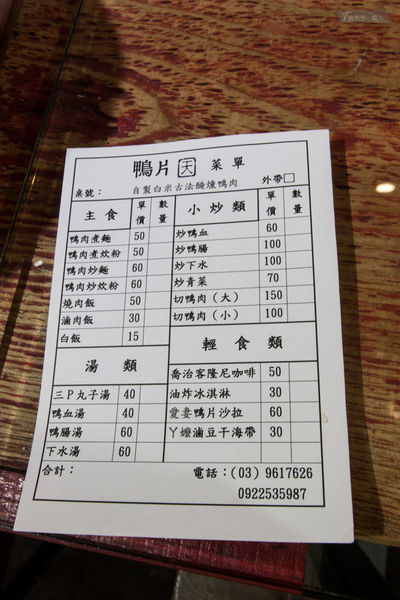 鴨片 天 菜單
自製白米古法醃燻鴨肉
桌號： 外帶□
主食 單價 數量
鴨肉煮麵 50
鴨肉煮炊粉 50
鴨肉炒麵 60
鴨肉炒炊粉 60
燒肉飯 50
滷肉飯 30
白飯 15
湯類
三P丸子湯 40
鴨血湯 40
鴨腸湯 60
下水湯 60
小炒類 單價 數量
炒鴨血 60
炒鴨腸 100
炒下水 100
炒青菜 70
切鴨肉（大） 150
切鴨肉（小） 100
輕食類
喬治客隆尼咖啡 50
油炸冰淇淋 30
愛妻鴨片沙拉 60
丫嬤滷豆干海帶 30
合計：
電話：(03) 9617626
0922535987